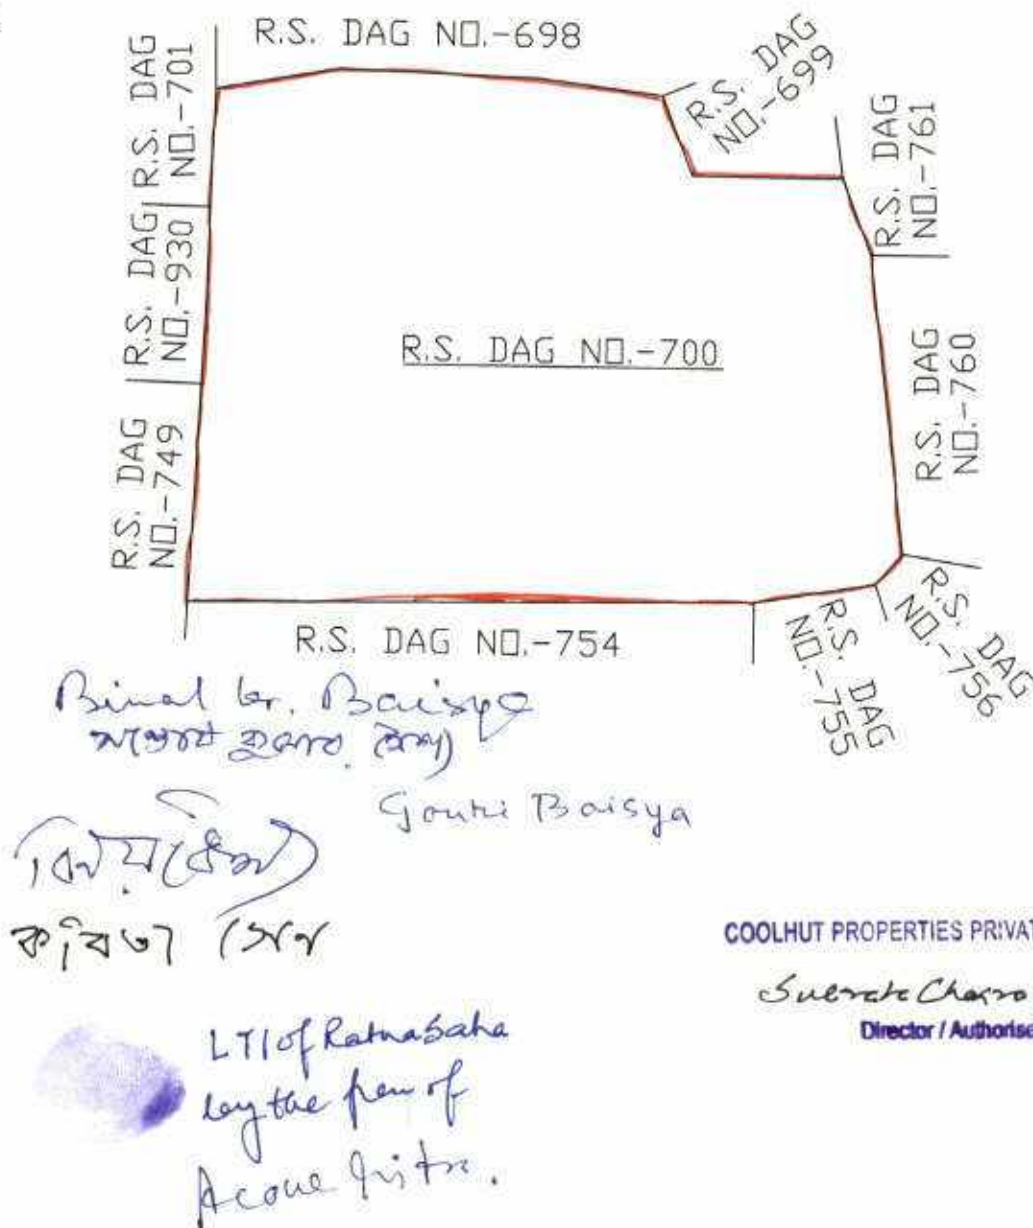 R.S. DAG NO.-698
R.S. DAG
NO.-699
R.S. DAG
NO.-701
R.S. DAG
NO.-761
R.S. DAG
NO.-930
R.S. DAG NO.-700
R.S. DAG
NO.-760
R.S. DAG
NO.-749
R.S. DAG NO.-754
R.S. DAG
NO.-755
R.S. DAG
NO.-756
Bimal kr. Baisya
কুমার বৈশ্য
Gouri Baisya
কবিতা সেন
COOLHUT PROPERTIES PRIVAT
Subrata Chakra
Director / Authorise
LTI of Ratna Saha
by the pen of